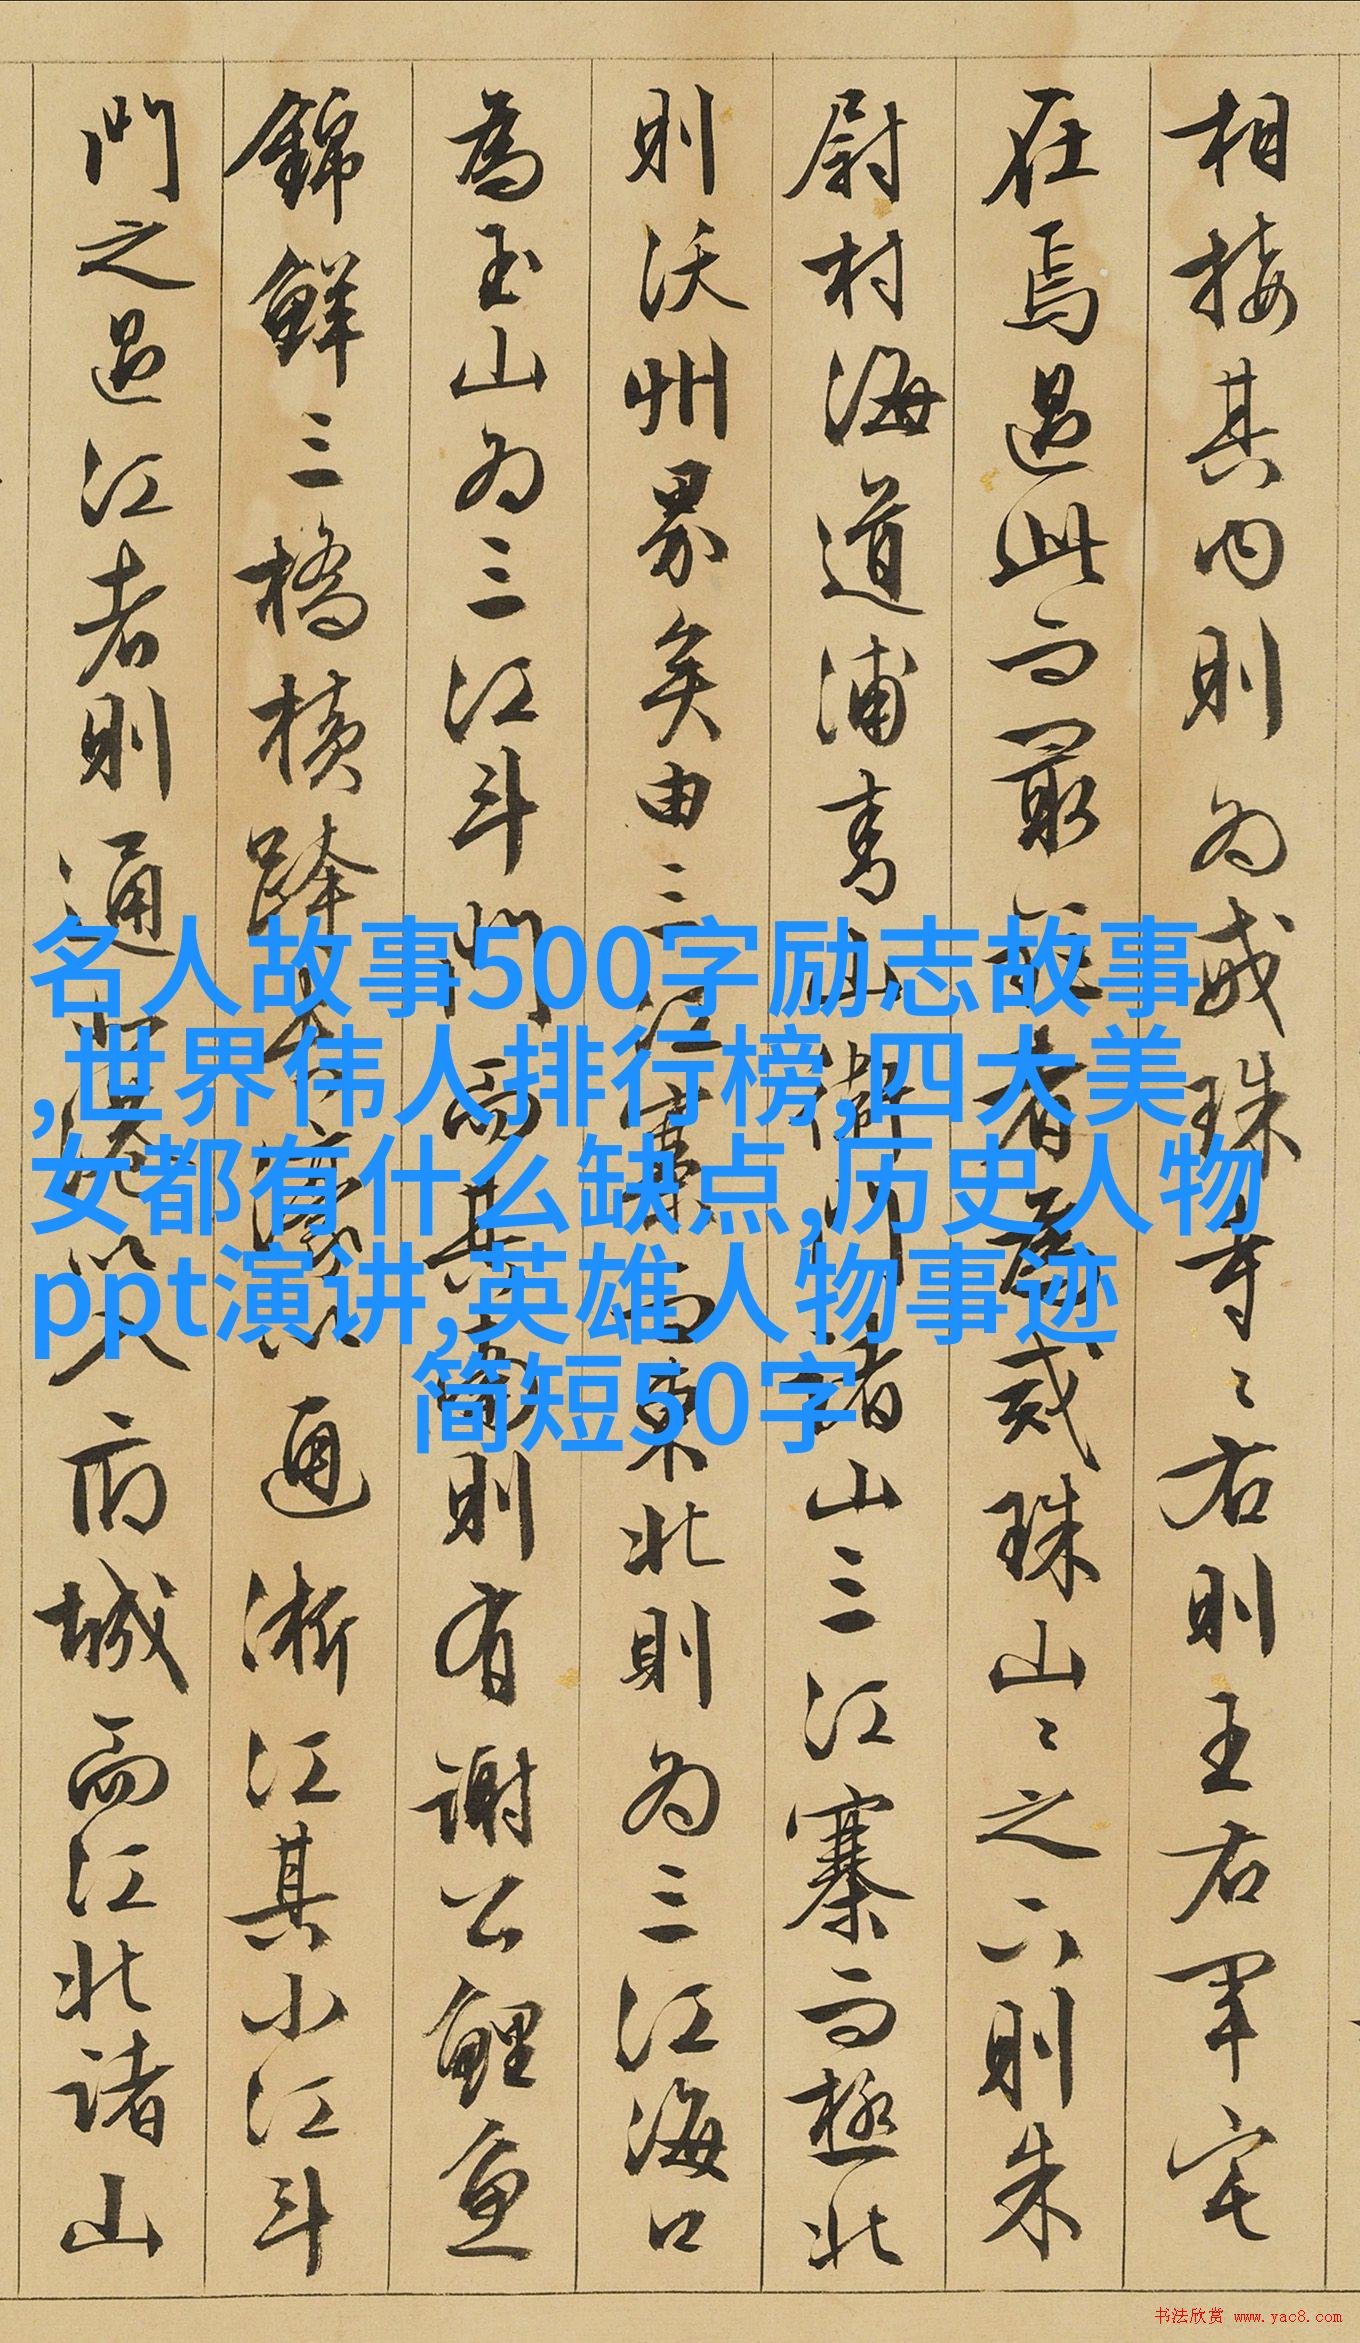 相接其内則為戒珠寺〻右則王右軍宅
在焉過此而最 者為戒珠山〻之下則朱
尉村海道浦 山 諸山三江寨而極北
則沃州界矣由三江 東北則為三江海口
為玉山為三江斗門而其 則有謝公鯉魚
錦鮮三橋橫跨 通浙江其小江斗
門之過江者則通 府城而江北諸山
名人故事500字励志故事
,世界伟人排行榜,四大美
女都有什么缺点,历史人物
ppt演讲,英雄人物事迹
简短50字
书法欣赏 www.yac8.com